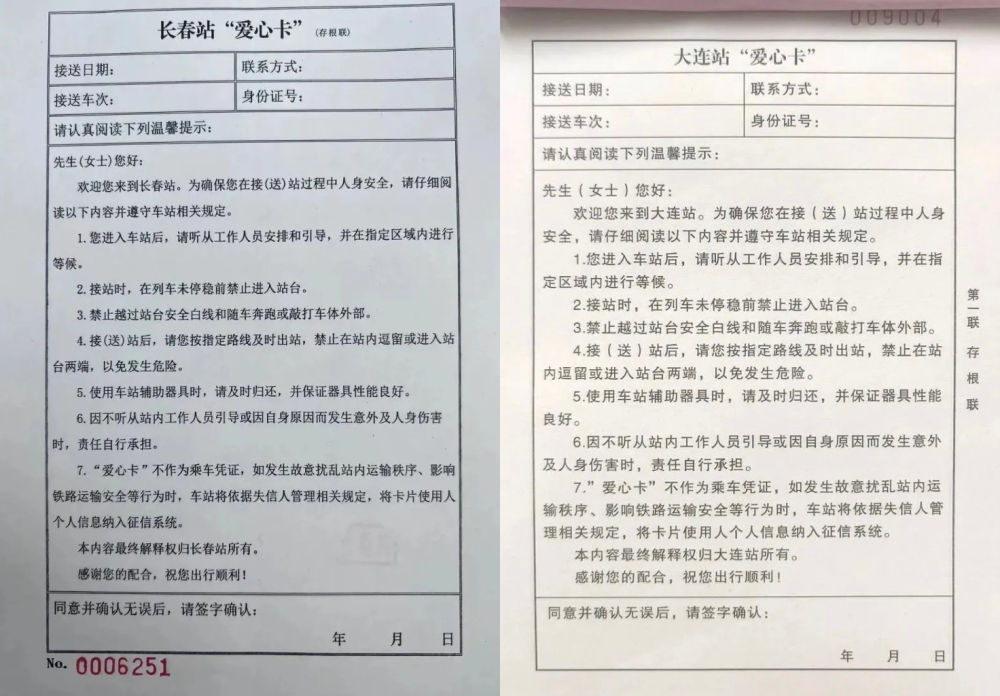 长春站“爱心卡”(存根联)
接送日期：
联系方式：
接送车次：
身份证号：
请认真阅读下列温馨提示：
先生(女士)您好：
欢迎您来到长春站。为确保您在接(送)站过程中人身安全，请仔细阅
读以下内容并遵守车站相关规定。
1.您进入车站后，请听从工作人员安排和引导，并在指定区域内进行
等候。
2.接站时，在列车未停稳前禁止进入站台。
3.禁止越过站台安全白线和随车奔跑或敲打车体外部。
4.接(送)站后，请您按指定路线及时出站，禁止在站内逗留或进入站
台两端，以免发生危险。
5.使用车站辅助器具时，请及时归还，并保证器具性能良好。
6.因不听从站内工作人员引导或因自身原因而发生意外及人身伤害
时，责任自行承担。
7.“爱心卡”不作为乘车凭证，如发生故意扰乱站内运输秩序、影响
铁路运输安全等行为时，车站将依据失信人管理相关规定，将卡片使用人
个人信息纳入征信系统。
本内容最终解释权归长春站所有。
感谢您的配合，祝您出行顺利！
同意并确认无误后，请签字确认：
年 月 日
No. 0006251
009004
大连站“爱心卡”
接送日期：
联系方式：
接送车次：
身份证号：
请认真阅读下列温馨提示：
先生（女士）您好：
欢迎您来到大连站。为确保您在接（送）站过程中人身
安全，请仔细阅读以下内容并遵守车站相关规定。
1.您进入车站后，请听从工作人员安排和引导，并在指
定区域内进行等候。
2.接站时，在列车未停稳前禁止进入站台。
3.禁止越过站台安全白线和随车奔跑或敲打车体外部。
4.接（送）站后，请您按指定路线及时出站，禁止在站
内逗留或进入站台两端，以免发生危险。
5.使用车站辅助器具时，请及时归还，并保证器具性能
良好。
6.因不听从站内工作人员引导或因自身原因而发生意外
及人身伤害时，责任自行承担。
7.”爱心卡”不作为乘车凭证，如发生故意扰乱站内运
输秩序、影响铁路运输安全等行为时，车站将依据失信人管
理相关规定，将卡片使用人个人信息纳入征信系统。
本内容最终解释权归大连站所有。
感谢您的配合，祝您出行顺利！
同意并确认无误后，请签字确认：
年 月 日
第一联 存根联